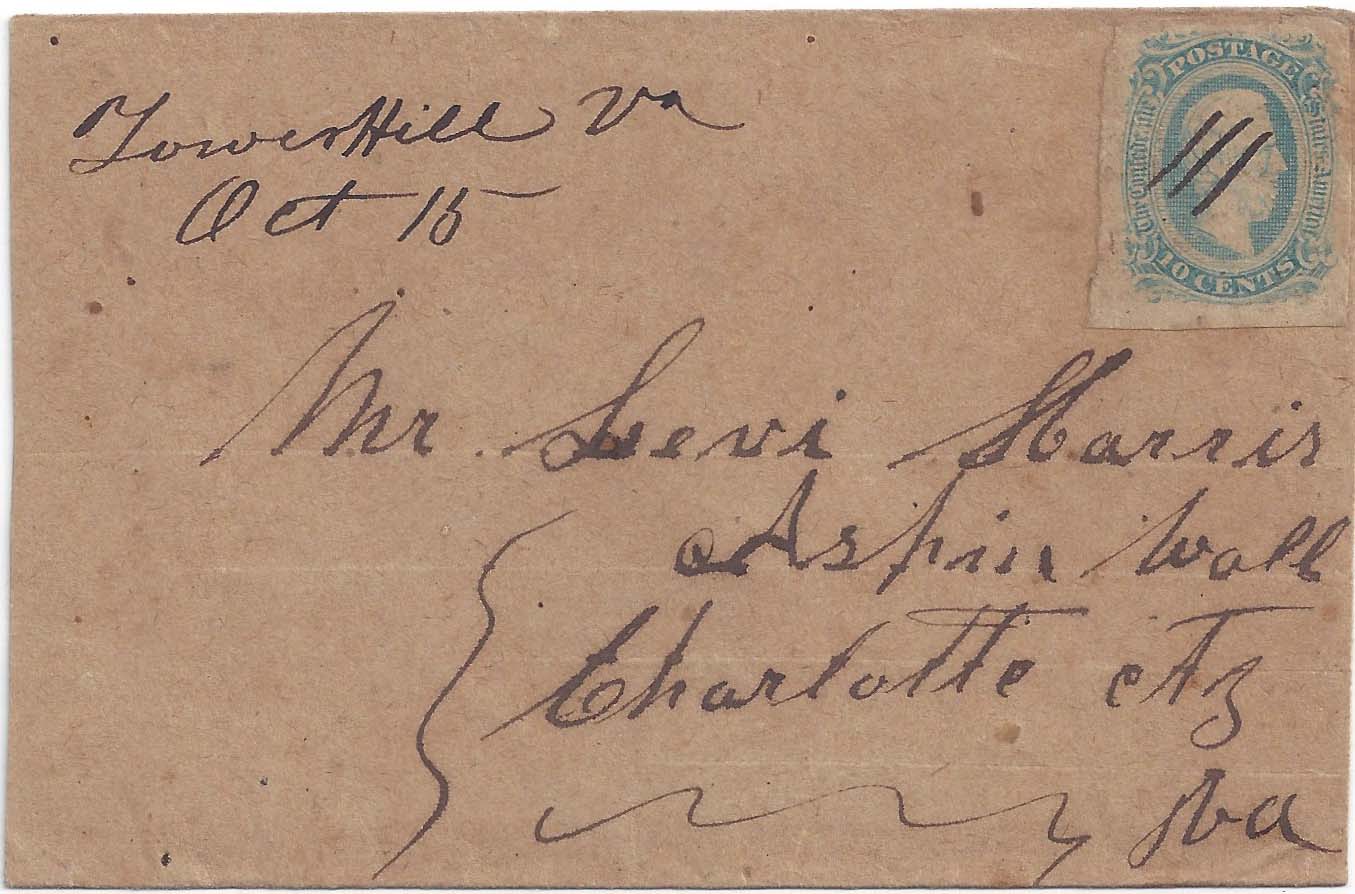 TowerHill Va
Oct 15
POSTAGE
The Confederate States of America
10 CENTS
Mr Levi Harris
Aspin Wall
Charlotte cty
Va